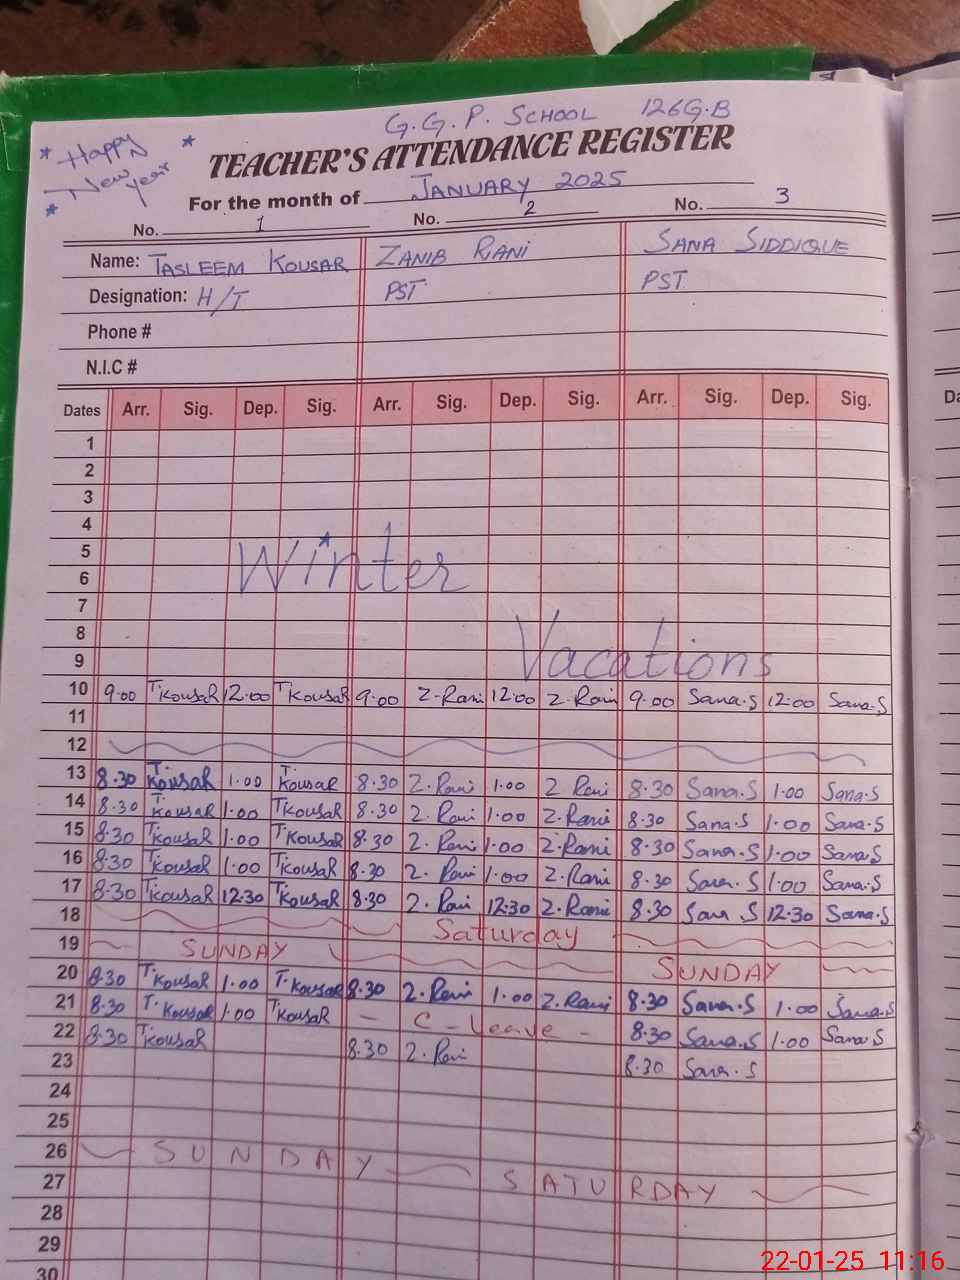 G.G.P. SCHOOL 126G.B
* Happy New year * *
TEACHER'S ATTENDANCE REGISTER
For the month of JANUARY 2025
No. 1 No. 2 No. 3
Name: TASLEEM KOUSAR ZANIB RANI SANA SIDDIQUE
Designation: H/T PST PST
Phone #
N.I.C #
Dates Arr. Sig. Dep. Sig. Arr. Sig. Dep. Sig. Arr. Sig. Dep. Sig.
1
2
3
4
5
Winter
6
7
8
Vacations
9
10 9.00 T.KousaR 12.00 T.KousaR 9.00 Z.Rani 12.00 Z.Rani 9.00 Sana.S 12.00 Sana.S
11
12
13 8.30 T.KousaR 1.00 T.KousaR 8.30 Z.Rani 1.00 Z Rani 8.30 Sana.S 1.00 Sana.S
14 8.30 T.KousaR 1.00 T.KousaR 8.30 Z.Rani 1.00 Z.Rani 8.30 Sana.S 1.00 Sana.S
15 8.30 T.KousaR 1.00 T.KousaR 8.30 Z.Rani 1.00 Z.Rani 8.30 Sana.S 1.00 Sana.S
16 8.30 T.KousaR 1.00 T.KousaR 8.30 Z.Rani 1.00 Z.Rani 8.30 Sana.S 1.00 Sana.S
17 8.30 T.KousaR 12.30 T.KousaR 8.30 Z.Rani 12.30 Z.Rani 8.30 Sana.S 12.30 Sana.S
18 Saturday
19 SUNDAY SUNDAY
20 8.30 T.KousaR 1.00 T.KousaR 8.30 Z.Rani 1.00 Z.Rani 8.30 Sana.S 1.00 Sana.S
21 8.30 T.KousaR 1.00 T.KousaR - C - Leave - 8.30 Sana.S 1.00 Sana.S
22 8.30 T.KousaR 8.30 Z.Rani 8.30 Sana.S
23
24
25
26 SUNDAY
27 SATURDAY
28
29
30
22-01-25 11:16